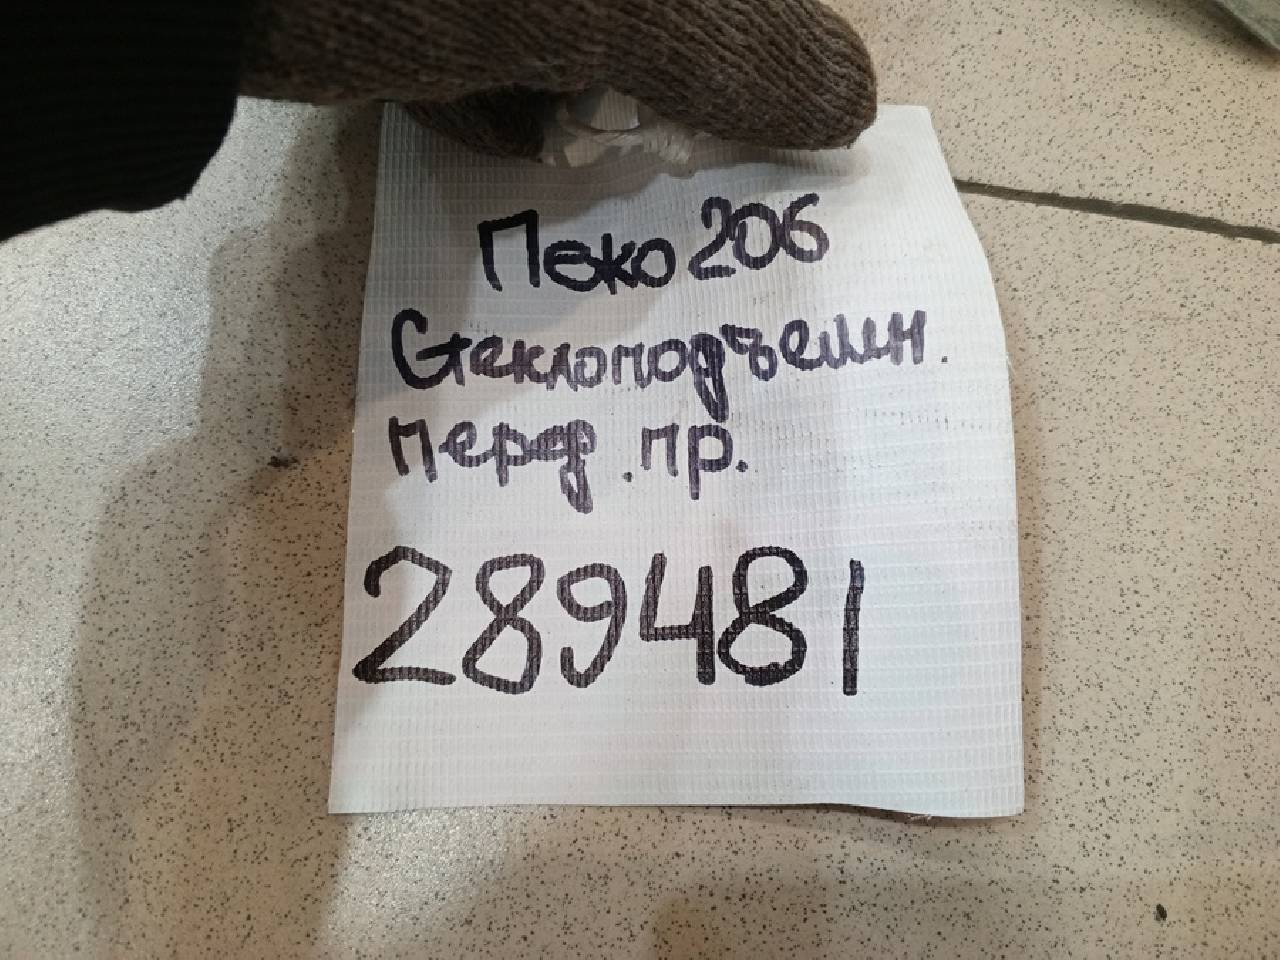 Пежо 206
Стеклоподъемн.
перед. пр.
289481